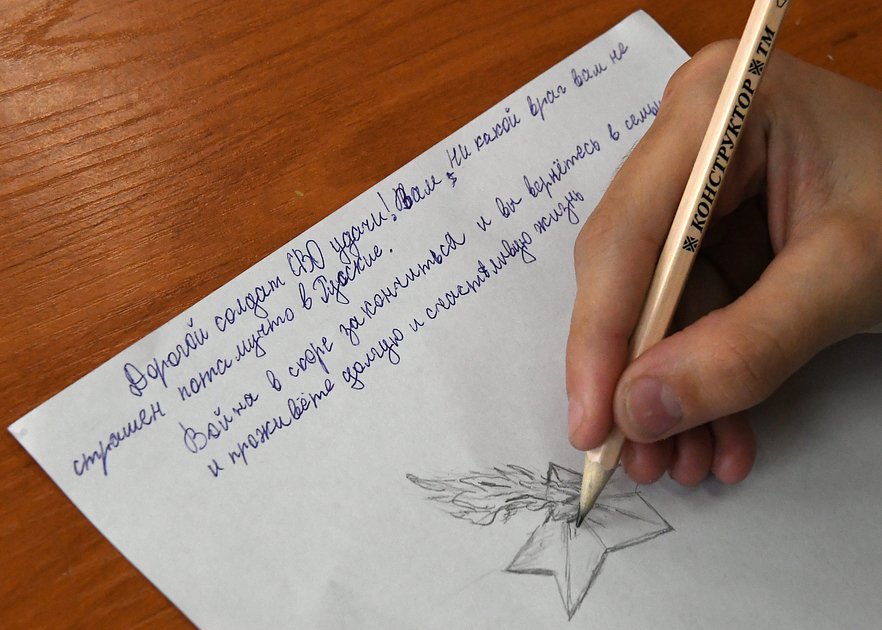 Дорогой солдат СВО удачи! Вам, Ни какой враг вам не
страшен потамучто в Руские.
Война в скоре закончиться и вы вернётесь в семью
и проживёте долгую и счастливую жизнь
КОНСТРУКТОР ТМ